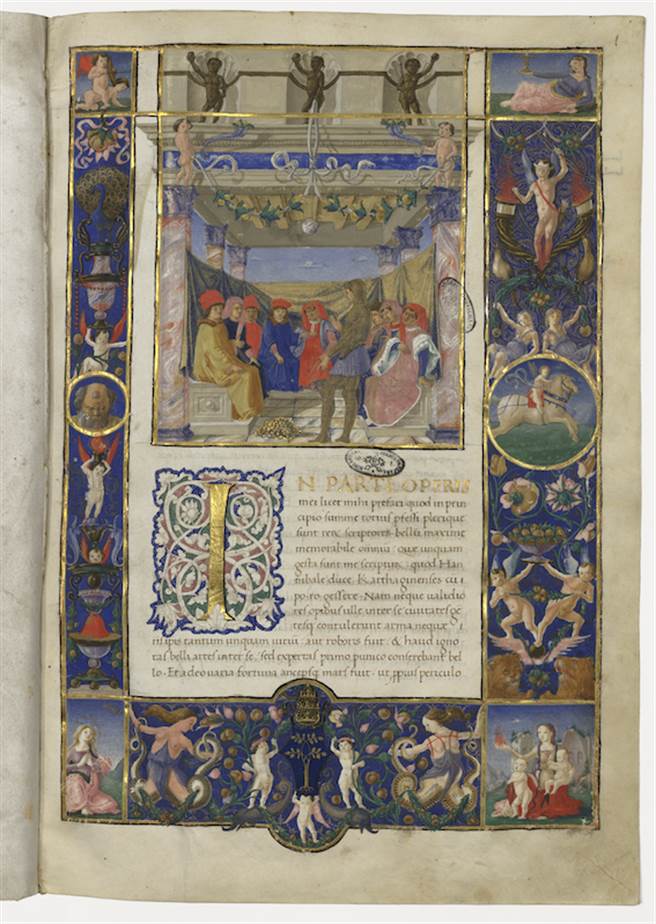 IN PARTE OPERIS
mei licet mihi prefari quod in prin
cipio summe totius ꝓfessi plerique
sunt rerū scriptores bellū maxime
memorabile omniū que unquam
gesta sint me scripturū quod Han
nibale duce Karthaginenses cū
po·ro· gessere. Nam neque validio
res opibus ulle inter se civitates gē
tesq; contulerunt arma neque
ipsis tantum unquam viriū aut roboris fuit & haud igno
tas belli artes inter se sed expertas primo punico conserebant bel
lo. Et adeo varia fortuna ancepsq; mars fuit ut ꝓpius periculo